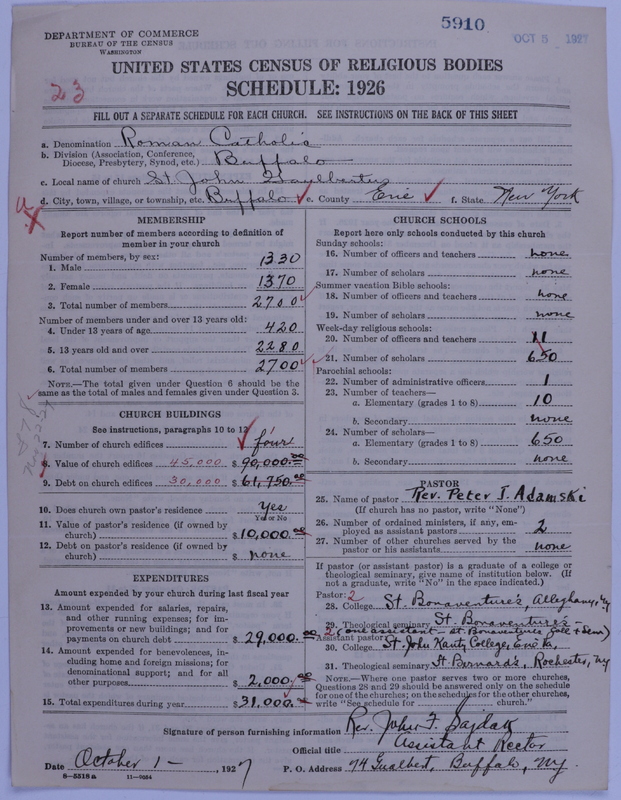 5910
OCT 5 1927
DEPARTMENT OF COMMERCE
BUREAU OF THE CENSUS
WASHINGTON
UNITED STATES CENSUS OF RELIGIOUS BODIES
SCHEDULE: 1926
23
FILL OUT A SEPARATE SCHEDULE FOR EACH CHURCH. SEE INSTRUCTIONS ON THE BACK OF THIS SHEET
a. Denomination Roman Catholic
b. Division (Association, Conference, Diocese, Presbytery, Synod, etc.) Buffalo
c. Local name of church St John Gualbertus
d. City, town, village, or township, etc. Buffalo e. County Erie f. State New York
MEMBERSHIP
Report number of members according to definition of
member in your church
Number of members, by sex:
1. Male 1330
2. Female 1370
3. Total number of members 2700
Number of members under and over 13 years old:
4. Under 13 years of age 420
5. 13 years old and over 2280
6. Total number of members 2700
NOTE.—The total given under Question 6 should be the
same as the total of males and females given under Question 3.
CHURCH BUILDINGS
See instructions, paragraphs 10 to 12
7. Number of church edifices four
8. Value of church edifices 45,000 $ 90,000.00
9. Debt on church edifices 30,000 $ 61,750.00
10. Does church own pastor's residence Yes
Yes or No
11. Value of pastor's residence (if owned by
church) $ 10,000.00
12. Debt on pastor's residence (if owned by
church) $ none
EXPENDITURES
Amount expended by your church during last fiscal year
13. Amount expended for salaries, repairs,
and other running expenses; for im-
provements or new buildings; and for
payments on church debt $ 29,000.00
14. Amount expended for benevolences, in-
cluding home and foreign missions; for
denominational support; and for all
other purposes $ 2,000.00
15. Total expenditures during year $ 31,000.00
CHURCH SCHOOLS
Report here only schools conducted by this church
Sunday schools:
16. Number of officers and teachers none
17. Number of scholars none
Summer vacation Bible schools:
18. Number of officers and teachers none
19. Number of scholars none
Week-day religious schools:
20. Number of officers and teachers 11
21. Number of scholars 650
Parochial schools:
22. Number of administrative officers 1
23. Number of teachers—
a. Elementary (grades 1 to 8) 10
b. Secondary none
24. Number of scholars—
a. Elementary (grades 1 to 8) 650
b. Secondary none
PASTOR
25. Name of pastor Rev. Peter J. Adamski
(If church has no pastor, write "None")
26. Number of ordained ministers, if any, em-
ployed as assistant pastors 2
27. Number of other churches served by the
pastor or his assistants none
If pastor (or assistant pastor) is a graduate of a college or
theological seminary, give name of institution below. (If
not a graduate, write "No" in the space indicated.)
Pastor: 2
28. College St Bonaventure's, Alleghany, Ny
29. Theological seminary St. Bonaventure's -
Assistant pastor 2 (one assistant - St. Bonaventure Coll + Sem)
30. College St. John Kanty College, Erie Pa,
31. Theological seminary St Bernard's, Rochester, Ny
NOTE.—Where one pastor serves two or more churches,
Questions 28 and 29 should be answered only on the schedule
for one of the churches; on the schedules for the other churches,
write "See schedule for church."
Signature of person furnishing information Rev. John F. Sajdak
Official title Assistant Rector
Date October 1 -, 1927 P. O. Address 74 Gualbert, Buffalo, Ny.
8—5518a 11—9064